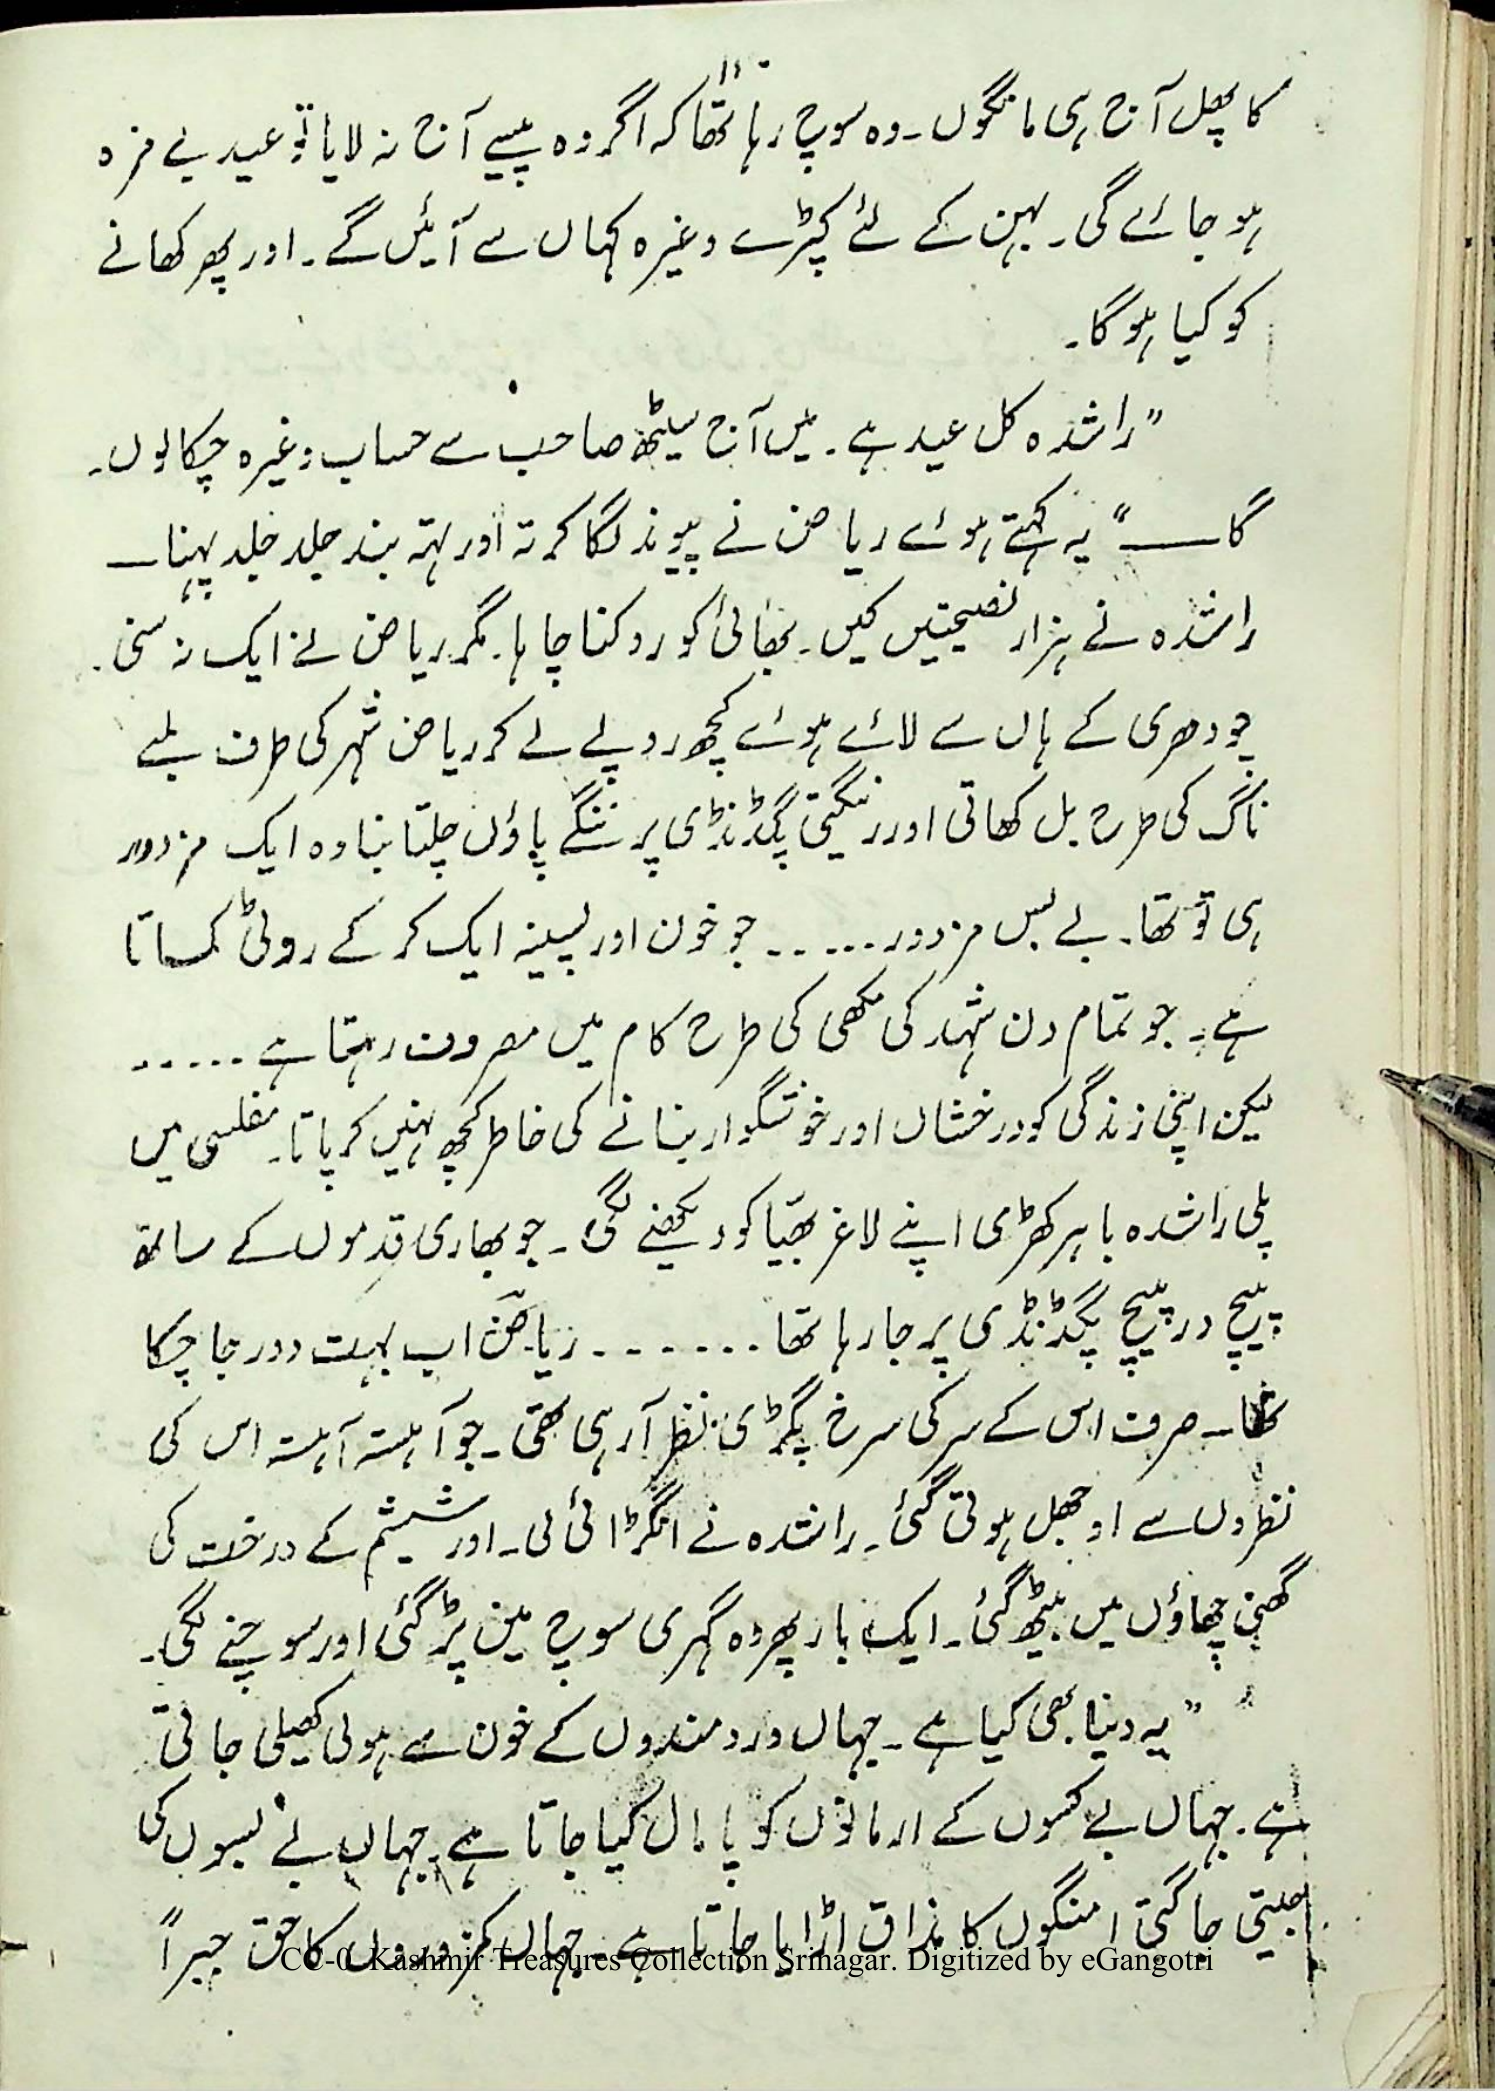 ۱۱
کا پھل آج ہی مانگوں۔ وہ سوچ رہا تھا کہ اگر وہ پیسے آج نہ لایا تو عید بے مزہ
ہو جائے گی۔ بہن کے لئے کپڑے وغیرہ کہاں سے آئیں گے۔ اور پھر کھانے
کو کیا ہو گا۔
”راشدہ کل عید ہے۔ میں آج سیٹھ صاحب سے حساب وغیرہ چکا لوں۔
گا ــــ“ یہ کہتے ہوئے ریاض نے پیوند لگا کرتہ اور تہہ بند جلد جلد پہنا ـــ
راشدہ نے ہزار نصیحتیں کیں۔ بھائی کو روکنا چاہا۔ مگر ریاض نے ایک نہ سنی۔
چودھری کے ہاں سے لائے ہوئے کچھ روپے لے کر ریاض شہر کی طرف لمبے
ناگ کی طرح بل کھاتی اور رینگتی پگڈنڈی پر ننگے پاؤں چلتا بنا وہ ایک مزدور
ہی تو تھا۔ بے بس مزدور ۔۔۔۔۔۔ جو خون اور پسینہ ایک کر کے روٹی کماتا
ہے۔ جو تمام دن شہد کی مکھی کی طرح کام میں مصروف رہتا ہے ۔۔۔۔۔
لیکن اپنی زندگی کو درخشاں اور خوشگوار بنانے کی خاطر کچھ نہیں کر پاتا۔ مفلسی میں
پلی راشدہ باہر کھڑی اپنے لاغر بھیّا کو دیکھنے لگی۔ جو بھاری قدموں کے ساتھ
پیچ در پیچ پگڈنڈی پر جا رہا تھا ۔۔۔۔۔۔۔ ریاض اب بہت دور جا چکا
تھا۔ صرف اس کے سر کی سرخ پگڑی نظر آ رہی تھی۔ جو آہستہ آہستہ اس کی
نظروں سے اوجھل ہوتی گئی۔ راشدہ نے انگڑائی لی۔ اور شیشم کے درخت کی
گھنی چھاؤں میں بیٹھ گئی۔ ایک بار پھر وہ گہری سوچ میں پڑ گئی اور سوچنے لگی۔
”یہ دنیا بھی کیا ہے۔ جہاں دردمندوں کے خون سے ہولی کھیلی جاتی
ہے۔ جہاں بے کسوں کے ارمانوں کو پامال کیا جاتا ہے۔ جہاں بے بسوں کی
جیتی جاگتی امنگوں کا مذاق اڑایا جاتا ہے۔ جہاں کمزوروں کا حق جبراً
CC-0. Kashmir Treasures Collection Srinagar. Digitized by eGangotri